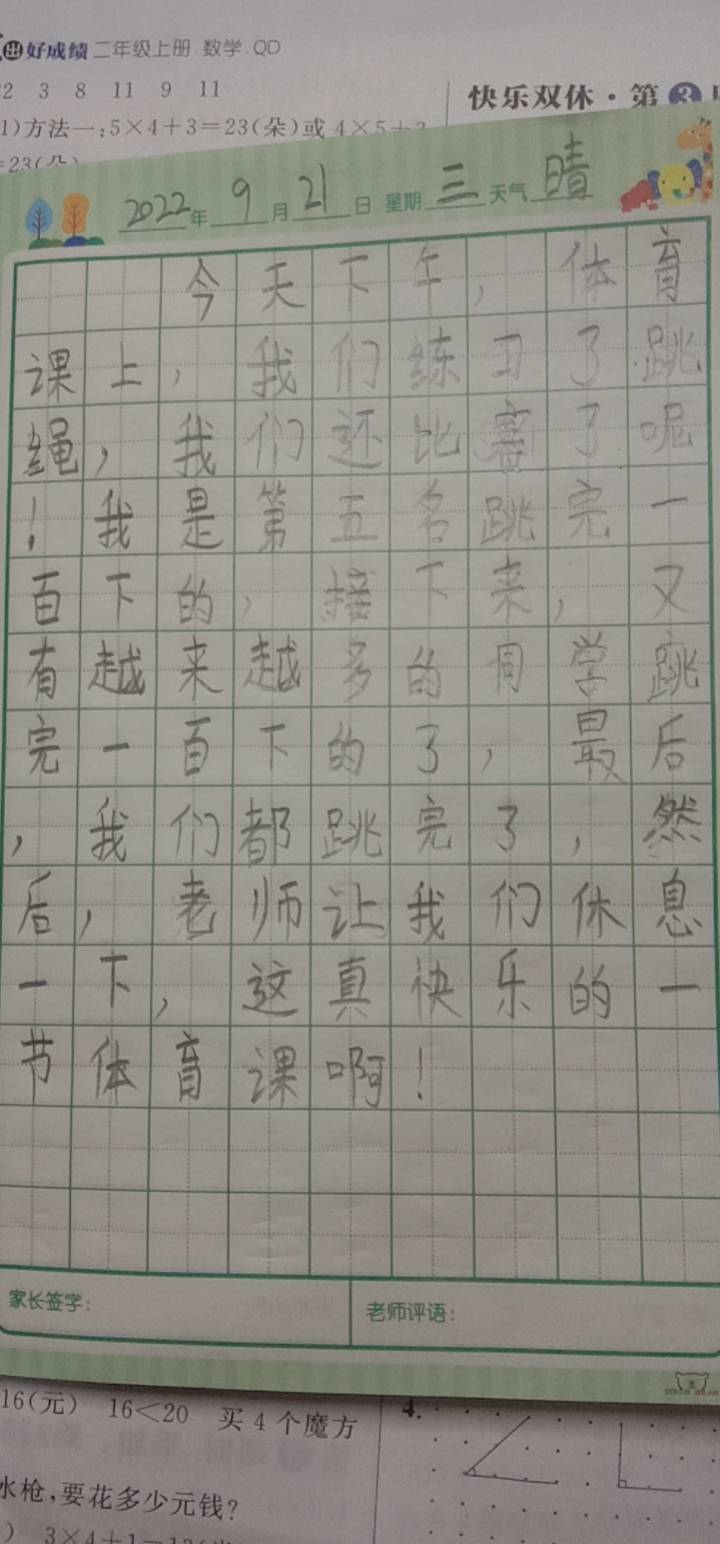 出好成绩 二年级上册 数学 QD
22 3 8 11 9 11
快乐双休·第3
1)方法一:5×4+3=23(朵)或 4×5+3
=23(朵)
2022年 9月 21日 星期三 天气 晴
今天下午，体育
课上，我们练习了跳
绳，我们还比赛了呢
！我是第五名跳完一
百下的，接下来，又
有越来越多的同学跳
完一百下的了，最后
，我们都跳完了，然
后，老师让我们休息
一下，这真快乐的一
节体育课啊！
家长签字:
老师评语:
16(元) 16<20 买4个魔方
4.
水枪,要花多少元钱?
) 3×4+1=13